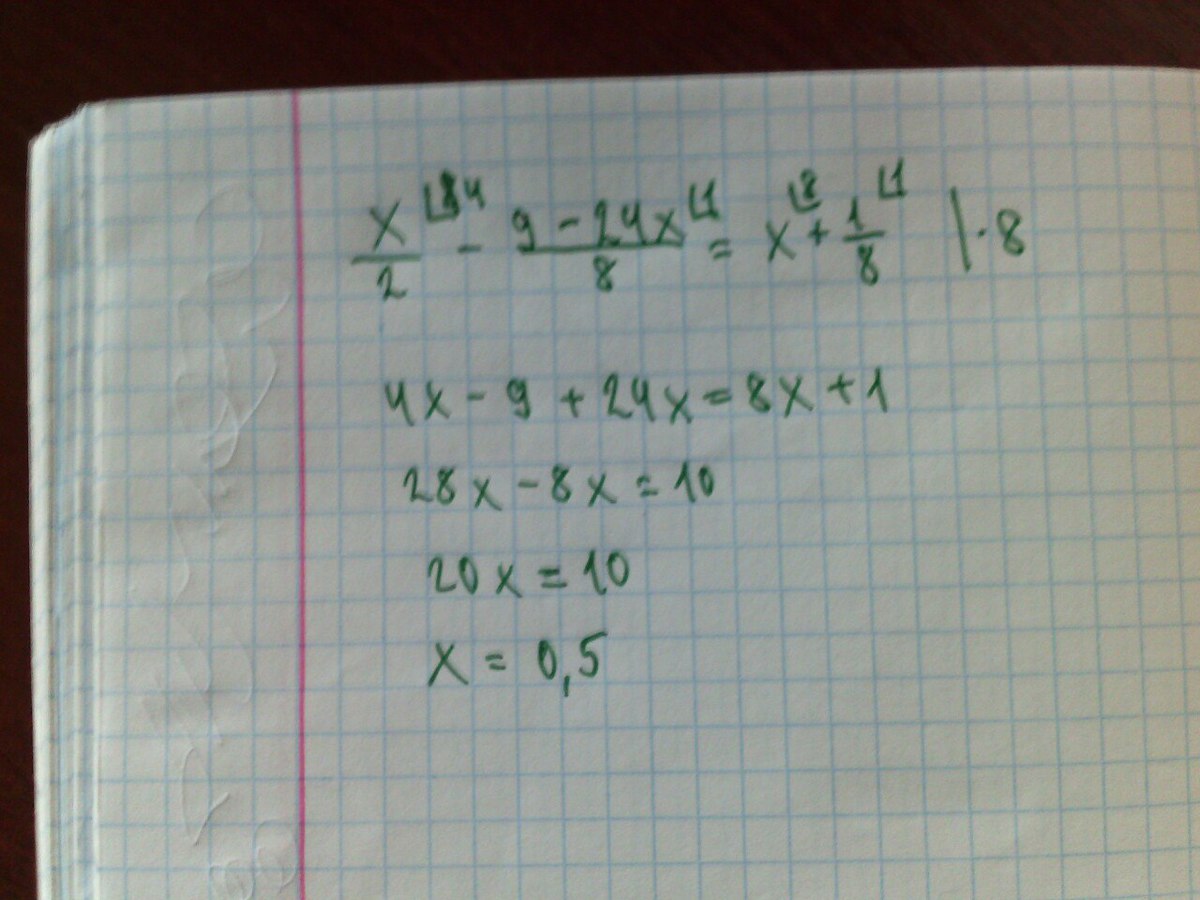 x/2 ⌊4 - (9 - 24x)/8 ⌊1 = x ⌊8 + 1/8 ⌊1 | · 8
4x - 9 + 24x = 8x + 1
28x - 8x = 10
20x = 10
x = 0,5